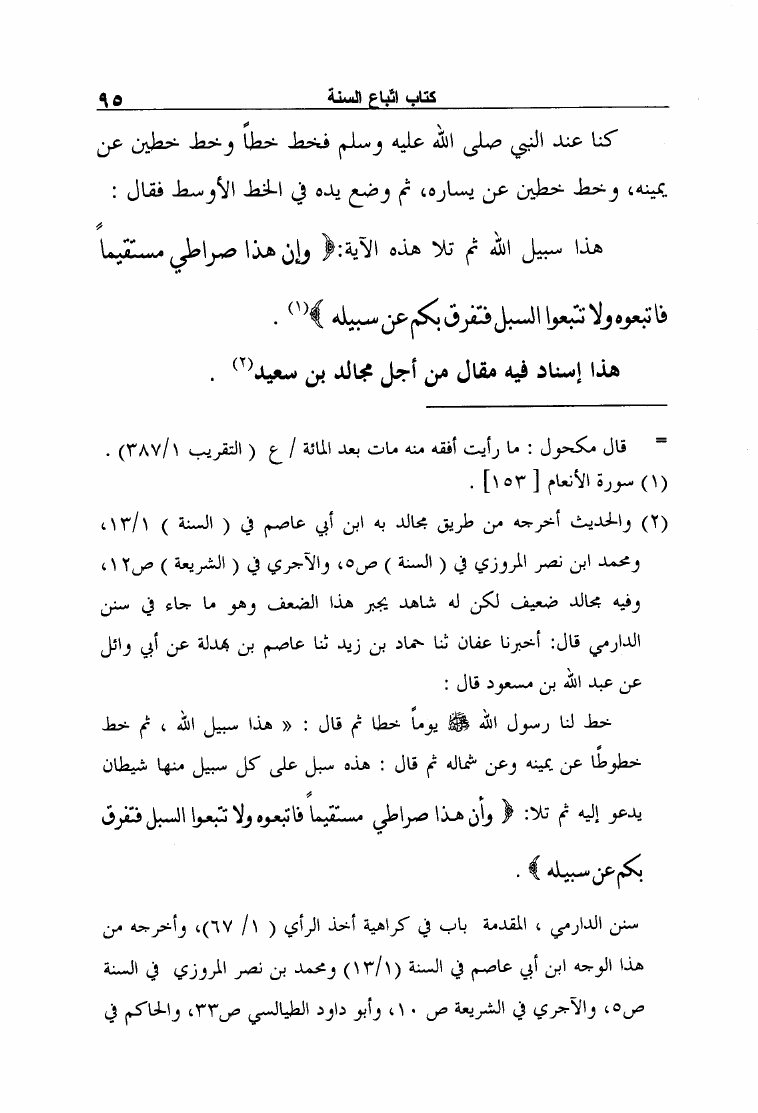 كتاب اتباع السنة ٩٥
كنا عند النبي صلى الله عليه وسلم فخط خطاً وخط خطين عن
يمينه، وخط خطين عن يساره، ثم وضع يده في الخط الأوسط فقال :
هذا سبيل الله ثم تلا هذه الآية:﴿ وإن هذا صراطي مستقيماً
فاتبعوه ولا تتبعوا السبل فتفرق بكم عن سبيله ﴾(١) .
هذا إسناد فيه مقال من أجل مجالد بن سعيد(٢) .
= قال مكحول : ما رأيت أفقه منه مات بعد المائة / ع ( التقريب ٣٨٧/١) .
(١) سورة الأنعام [ ١٥٣] .
(٢) والحديث أخرجه من طريق مجالد به ابن أبي عاصم في ( السنة ) ١٣/١،
ومحمد ابن نصر المروزي في ( السنة ) ص٥، والآجري في ( الشريعة ) ص١٢،
وفيه مجالد ضعيف لكن له شاهد يجبر هذا الضعف وهو ما جاء في سنن
الدارمي قال: أخبرنا عفان ثنا حماد بن زيد ثنا عاصم بن بهدلة عن أبي وائل
عن عبد الله بن مسعود قال :
خط لنا رسول الله ﷺ يوماً خطا ثم قال : « هذا سبيل الله ، ثم خط
خطوطًا عن يمينه وعن شماله ثم قال : هذه سبل على كل سبيل منها شيطان
يدعو إليه ثم تلا: ﴿ وأن هذا صراطي مستقيماً فاتبعوه ولا تتبعوا السبل فتفرق
بكم عن سبيله ﴾ .
سنن الدارمي ، المقدمة باب في كراهية أخذ الرأي ( ١/ ٦٧)، وأخرجه من
هذا الوجه ابن أبي عاصم في السنة (١٣/١) ومحمد بن نصر المروزي في السنة
ص٥، والآجري في الشريعة ص ١٠، وأبو داود الطيالسي ص٣٣، والحاكم في